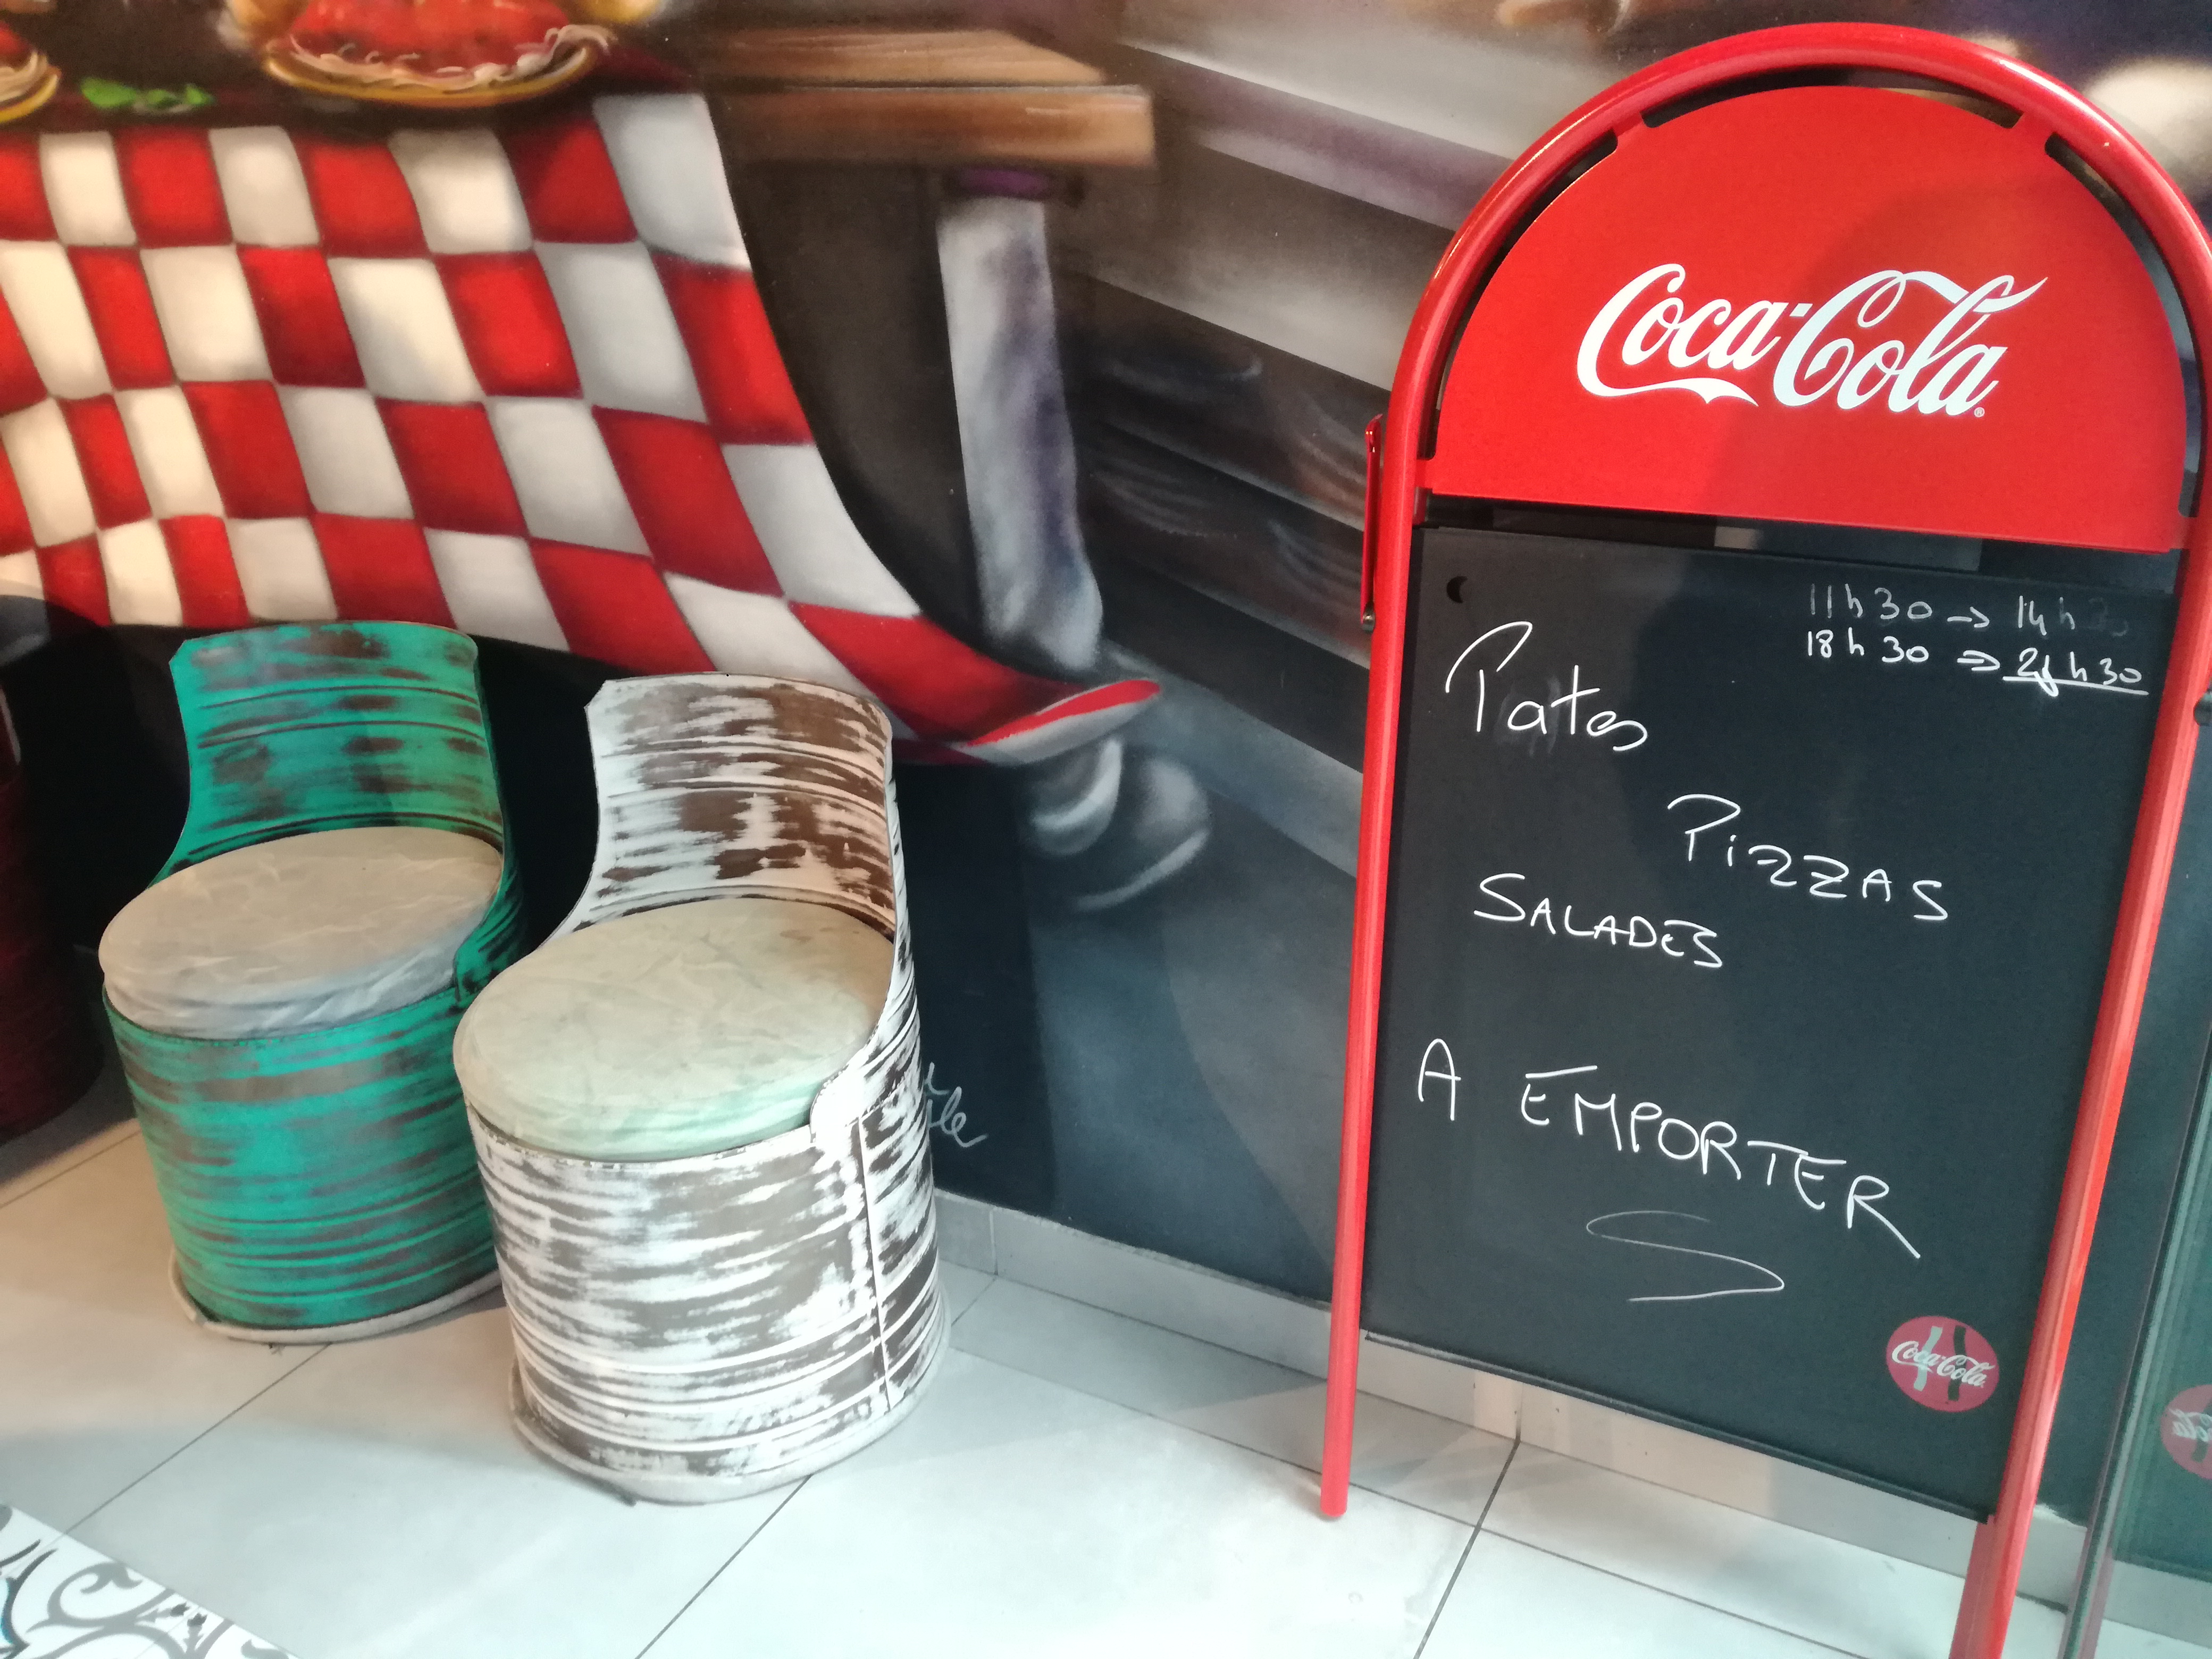 Coca-Cola
11h30 -> 14h
18h30 => 21h30
Pates
PIZZAS
SALADES
A EMPORTER
Coca-Cola